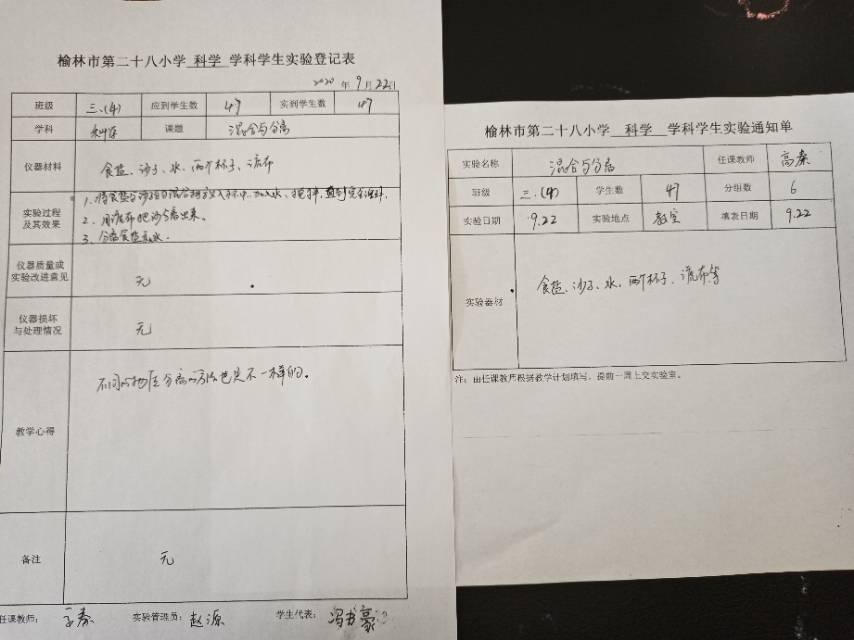 榆林市第二十八小学 科学 学科学生实验登记表
2020 年 9 月 22 日
班级 三.(4) 应到学生数 47 实到学生数 47
学科 科学 课题 混合与分离
仪器材料 食盐、沙子、水、两个杯子、滤布
实验过程及其效果
1、将食盐与沙子的混合物放入杯中,加入水、搅拌,直到完全溶解.
2、用滤布把沙子分离出来。
3、分离食盐和水.
仪器质量或实验改进意见 无
仪器损坏与处理情况 无
教学心得 不同的物质分离的方法也是不一样的。
备注 无
任课教师: 实验管理员: 赵源 学生代表: 冯书豪
榆林市第二十八小学 科学 学科学生实验通知单
实验名称 混合与分离 任课教师 高秦
班级 三.(4) 学生数 47 分组数 6
实验日期 9.22 实验地点 教室 填表日期 9.22
实验器材 食盐、沙子、水、两个杯子、滤布等
注:由任课教师根据教学计划填写,提前一周上交实验室。